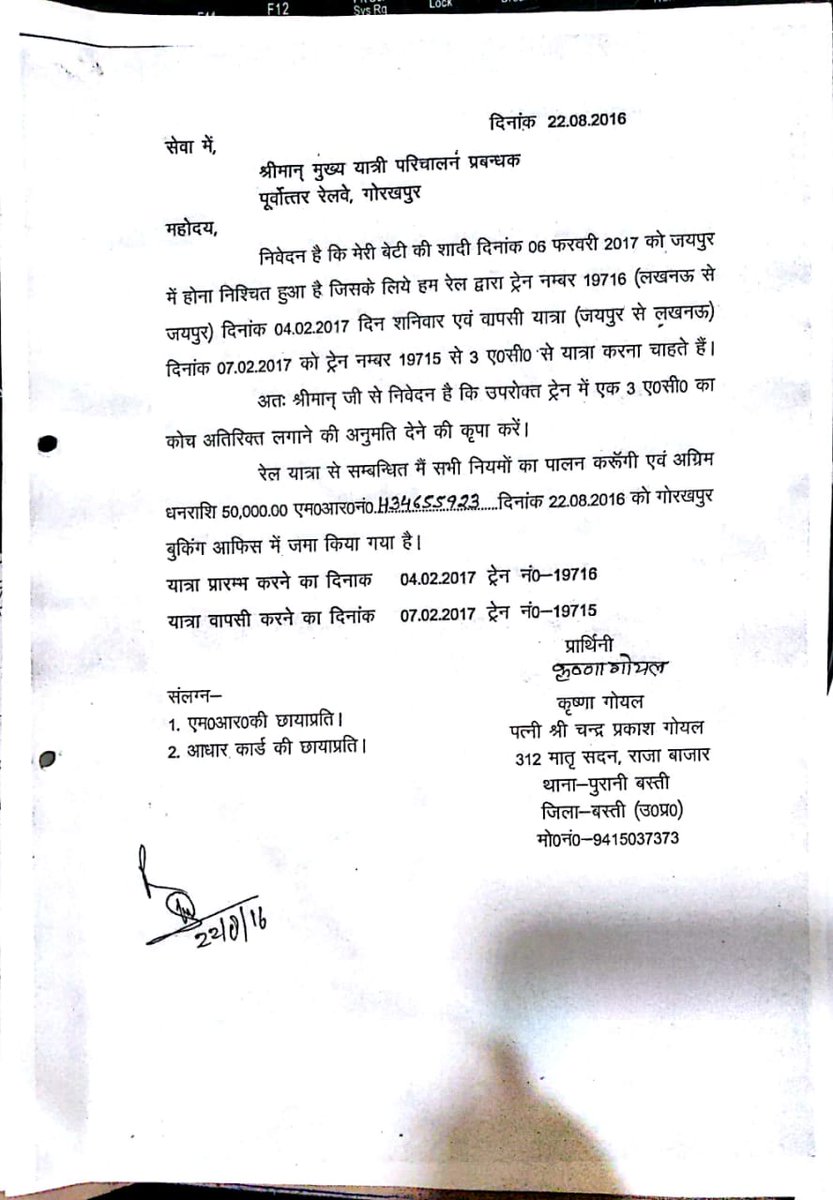 F12
Sys Rq
Lock
दिनांक 22.08.2016
सेवा में,
श्रीमान् मुख्य यात्री परिचालन प्रबन्धक
पूर्वोत्तर रेलवे, गोरखपुर
महोदय,
निवेदन है कि मेरी बेटी की शादी दिनांक 06 फरवरी 2017 को जयपुर
में होना निश्चित हुआ है जिसके लिये हम रेल द्वारा ट्रेन नम्बर 19716 (लखनऊ से
जयपुर) दिनांक 04.02.2017 दिन शनिवार एवं वापसी यात्रा (जयपुर से लखनऊ)
दिनांक 07.02.2017 को ट्रेन नम्बर 19715 से 3 ए0सी0 से यात्रा करना चाहते हैं।
अतः श्रीमान् जी से निवेदन है कि उपरोक्त ट्रेन में एक 3 ए0सी0 का
कोच अतिरिक्त लगाने की अनुमति देने की कृपा करें।
रेल यात्रा से सम्बन्धित मैं सभी नियमों का पालन करूँगी एवं अग्रिम
धनराशि 50,000.00 एम0आर0नं0.H34655923......दिनांक 22.08.2016 को गोरखपुर
बुकिंग आफिस में जमा किया गया है।
यात्रा प्रारम्भ करने का दिनाक 04.02.2017 ट्रेन नं0–19716
यात्रा वापसी करने का दिनांक 07.02.2017 ट्रेन नं0–19715
प्रार्थिनी
कृष्णा गोयल
संलग्न–
कृष्णा गोयल
1. एम0आर0की छायाप्रति।
पत्नी श्री चन्द्र प्रकाश गोयल
2. आधार कार्ड की छायाप्रति।
312 मातृ सदन, राजा बाजार
थाना–पुरानी बस्ती
जिला–बस्ती (उ0प्र0)
मो0नं0–9415037373
22/8/16